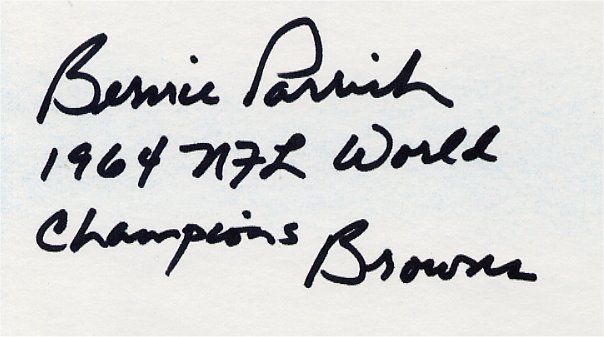 Bernie Parrish
1964 NFL World
Champions Browns